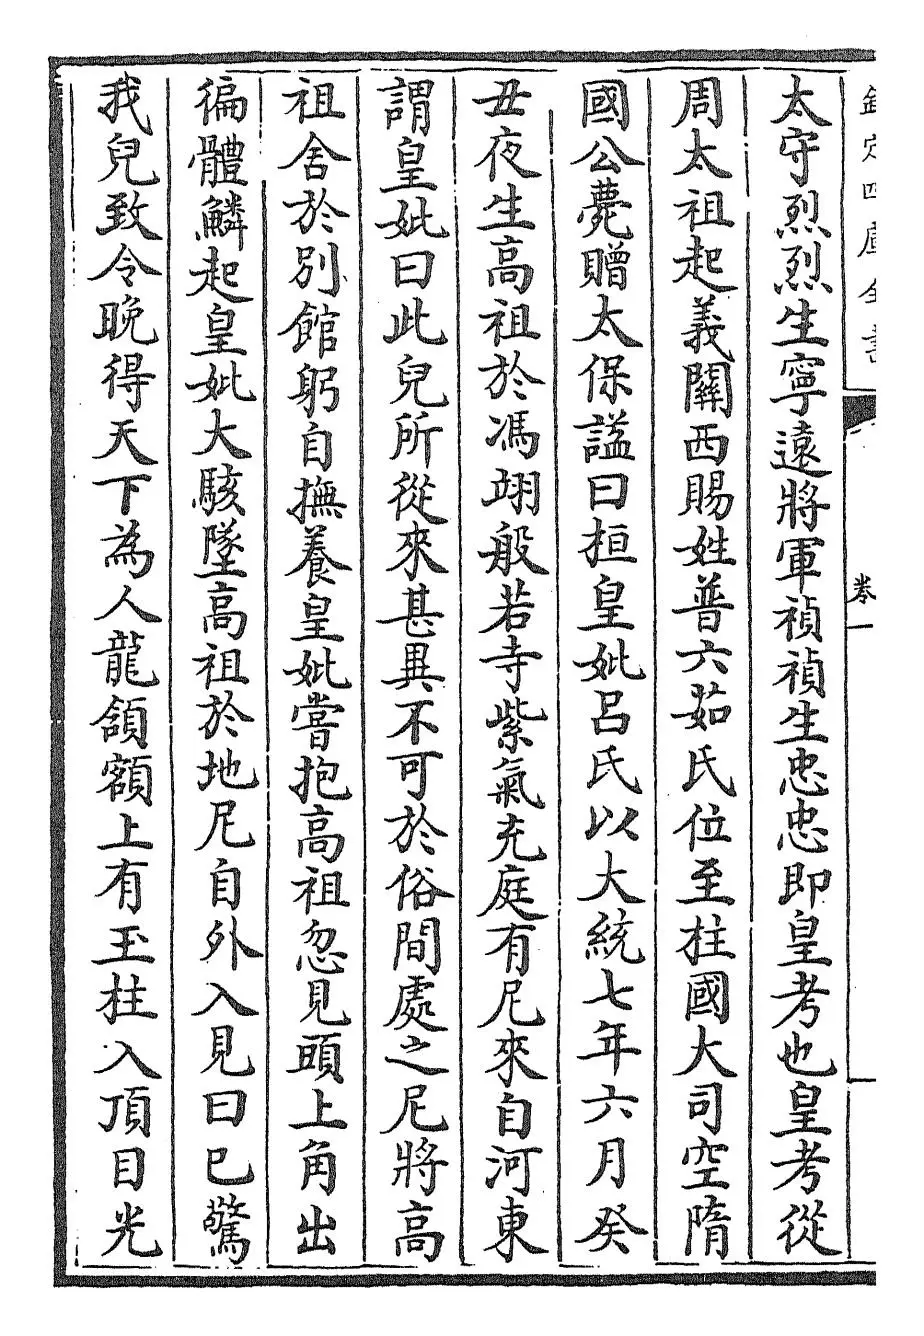 欽定四庫全書
卷一
太守烈烈生寧遠將軍禎禎生忠忠即皇考也皇考從
周太祖起義關西賜姓普六茹氏位至柱國大司空隋
國公薨贈太保諡曰桓皇妣呂氏以大統七年六月癸
丑夜生高祖於馮翊般若寺紫氣充庭有尼來自河東
謂皇妣曰此兒所從來甚異不可於俗間處之尼將高
祖舍於別館躬自撫養皇妣嘗抱高祖忽見頭上角出
徧體鱗起皇妣大駭墜高祖於地尼自外入見曰已驚
我兒致令晚得天下為人龍頷額上有玉柱入頂目光